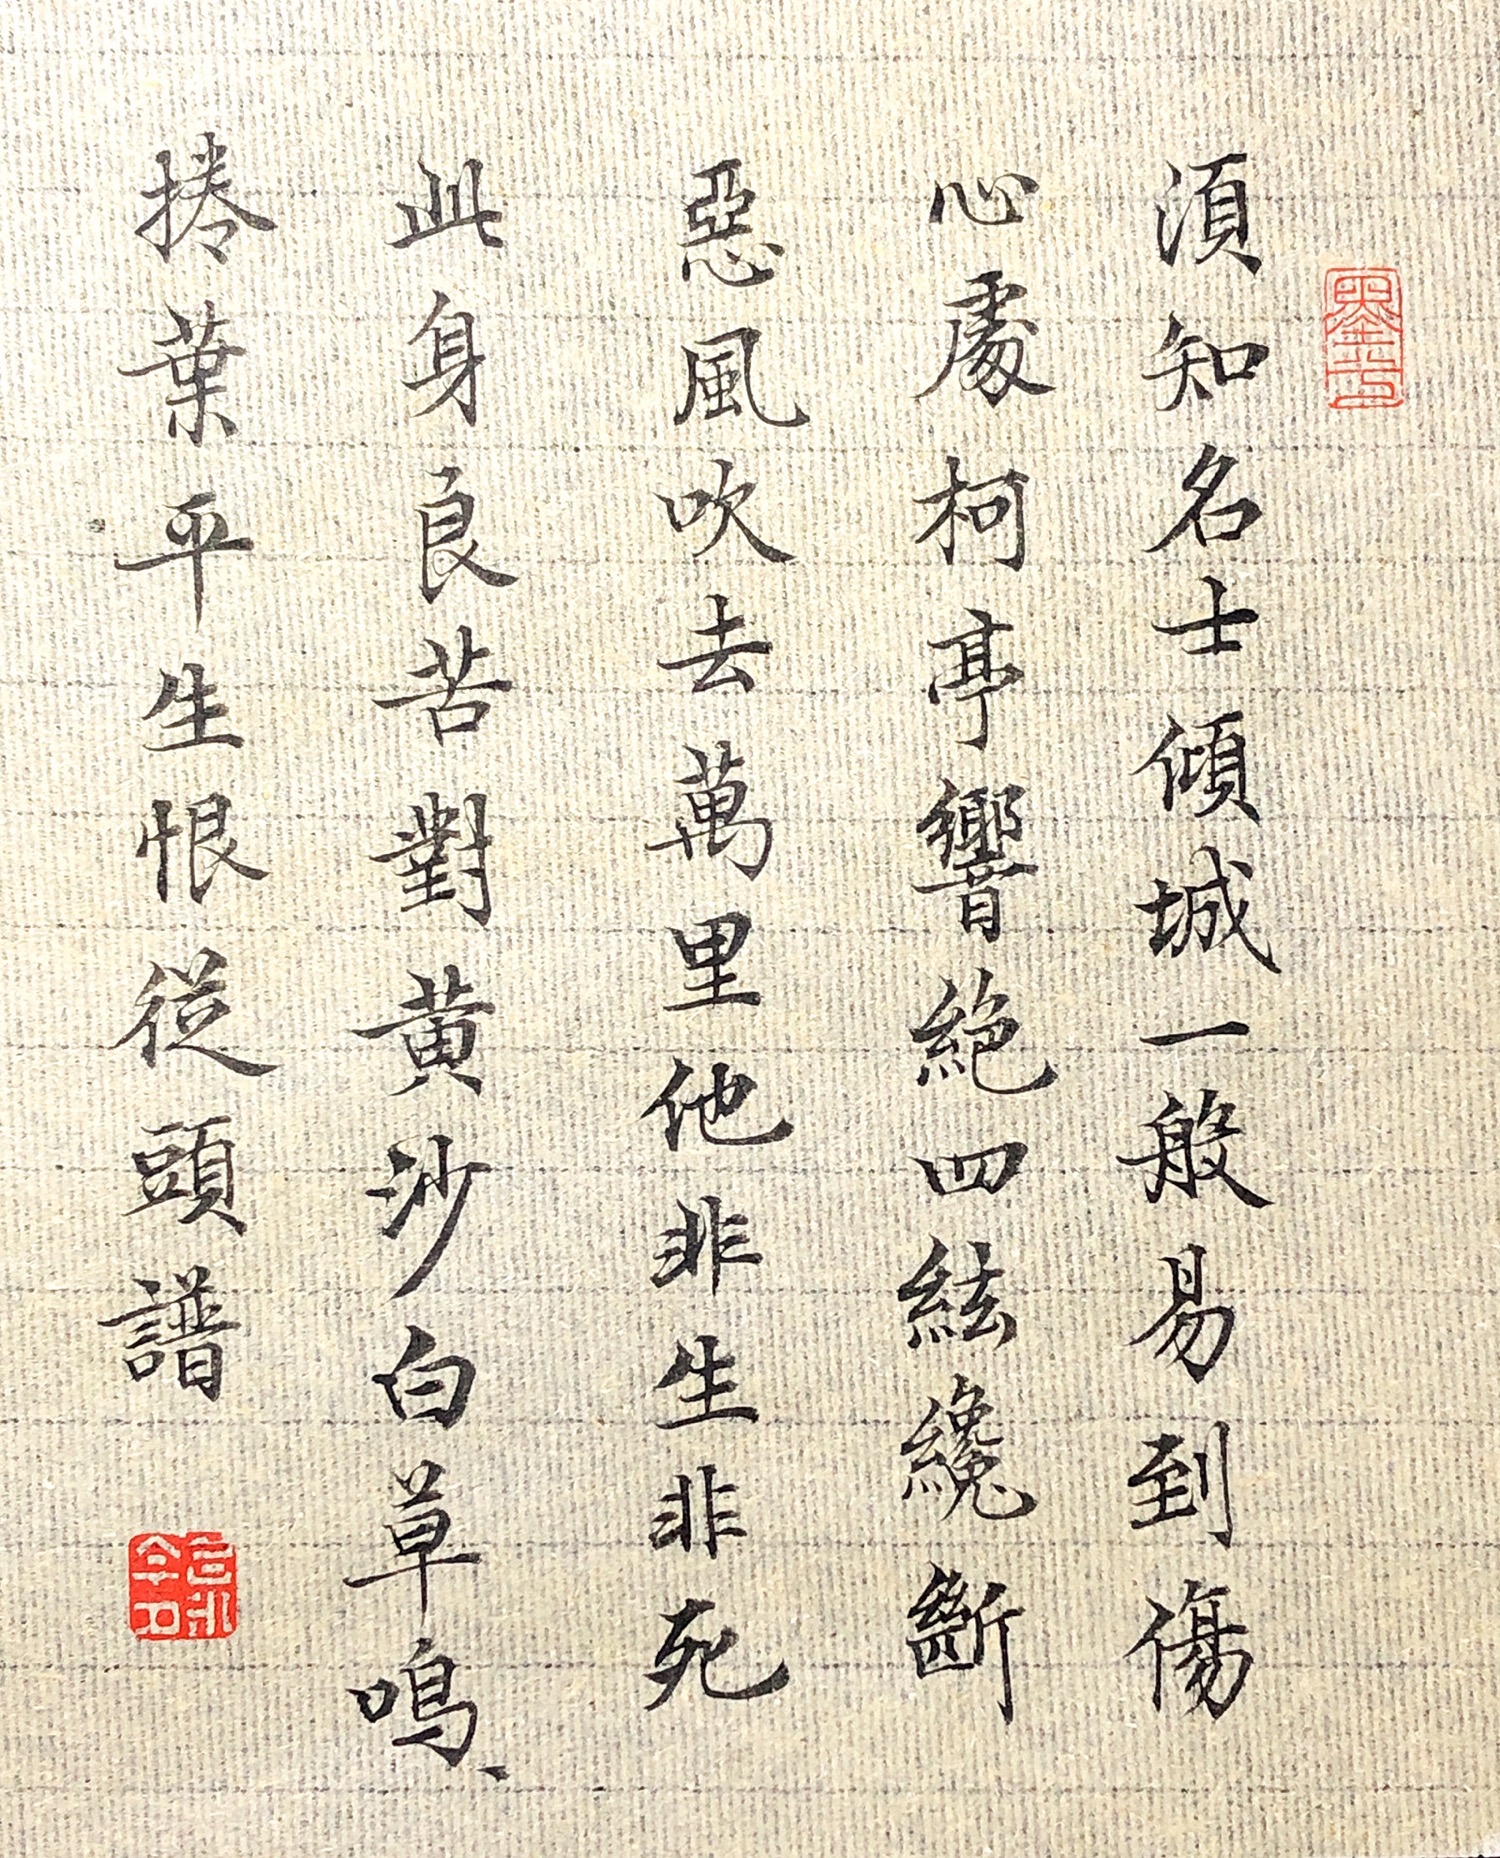 須知名士傾城一般易到傷
心處柯亭響絕四絃纔斷
惡風吹去萬里他非生非死
此身良苦對黃沙白草鳴、
捲葉平生恨從頭譜